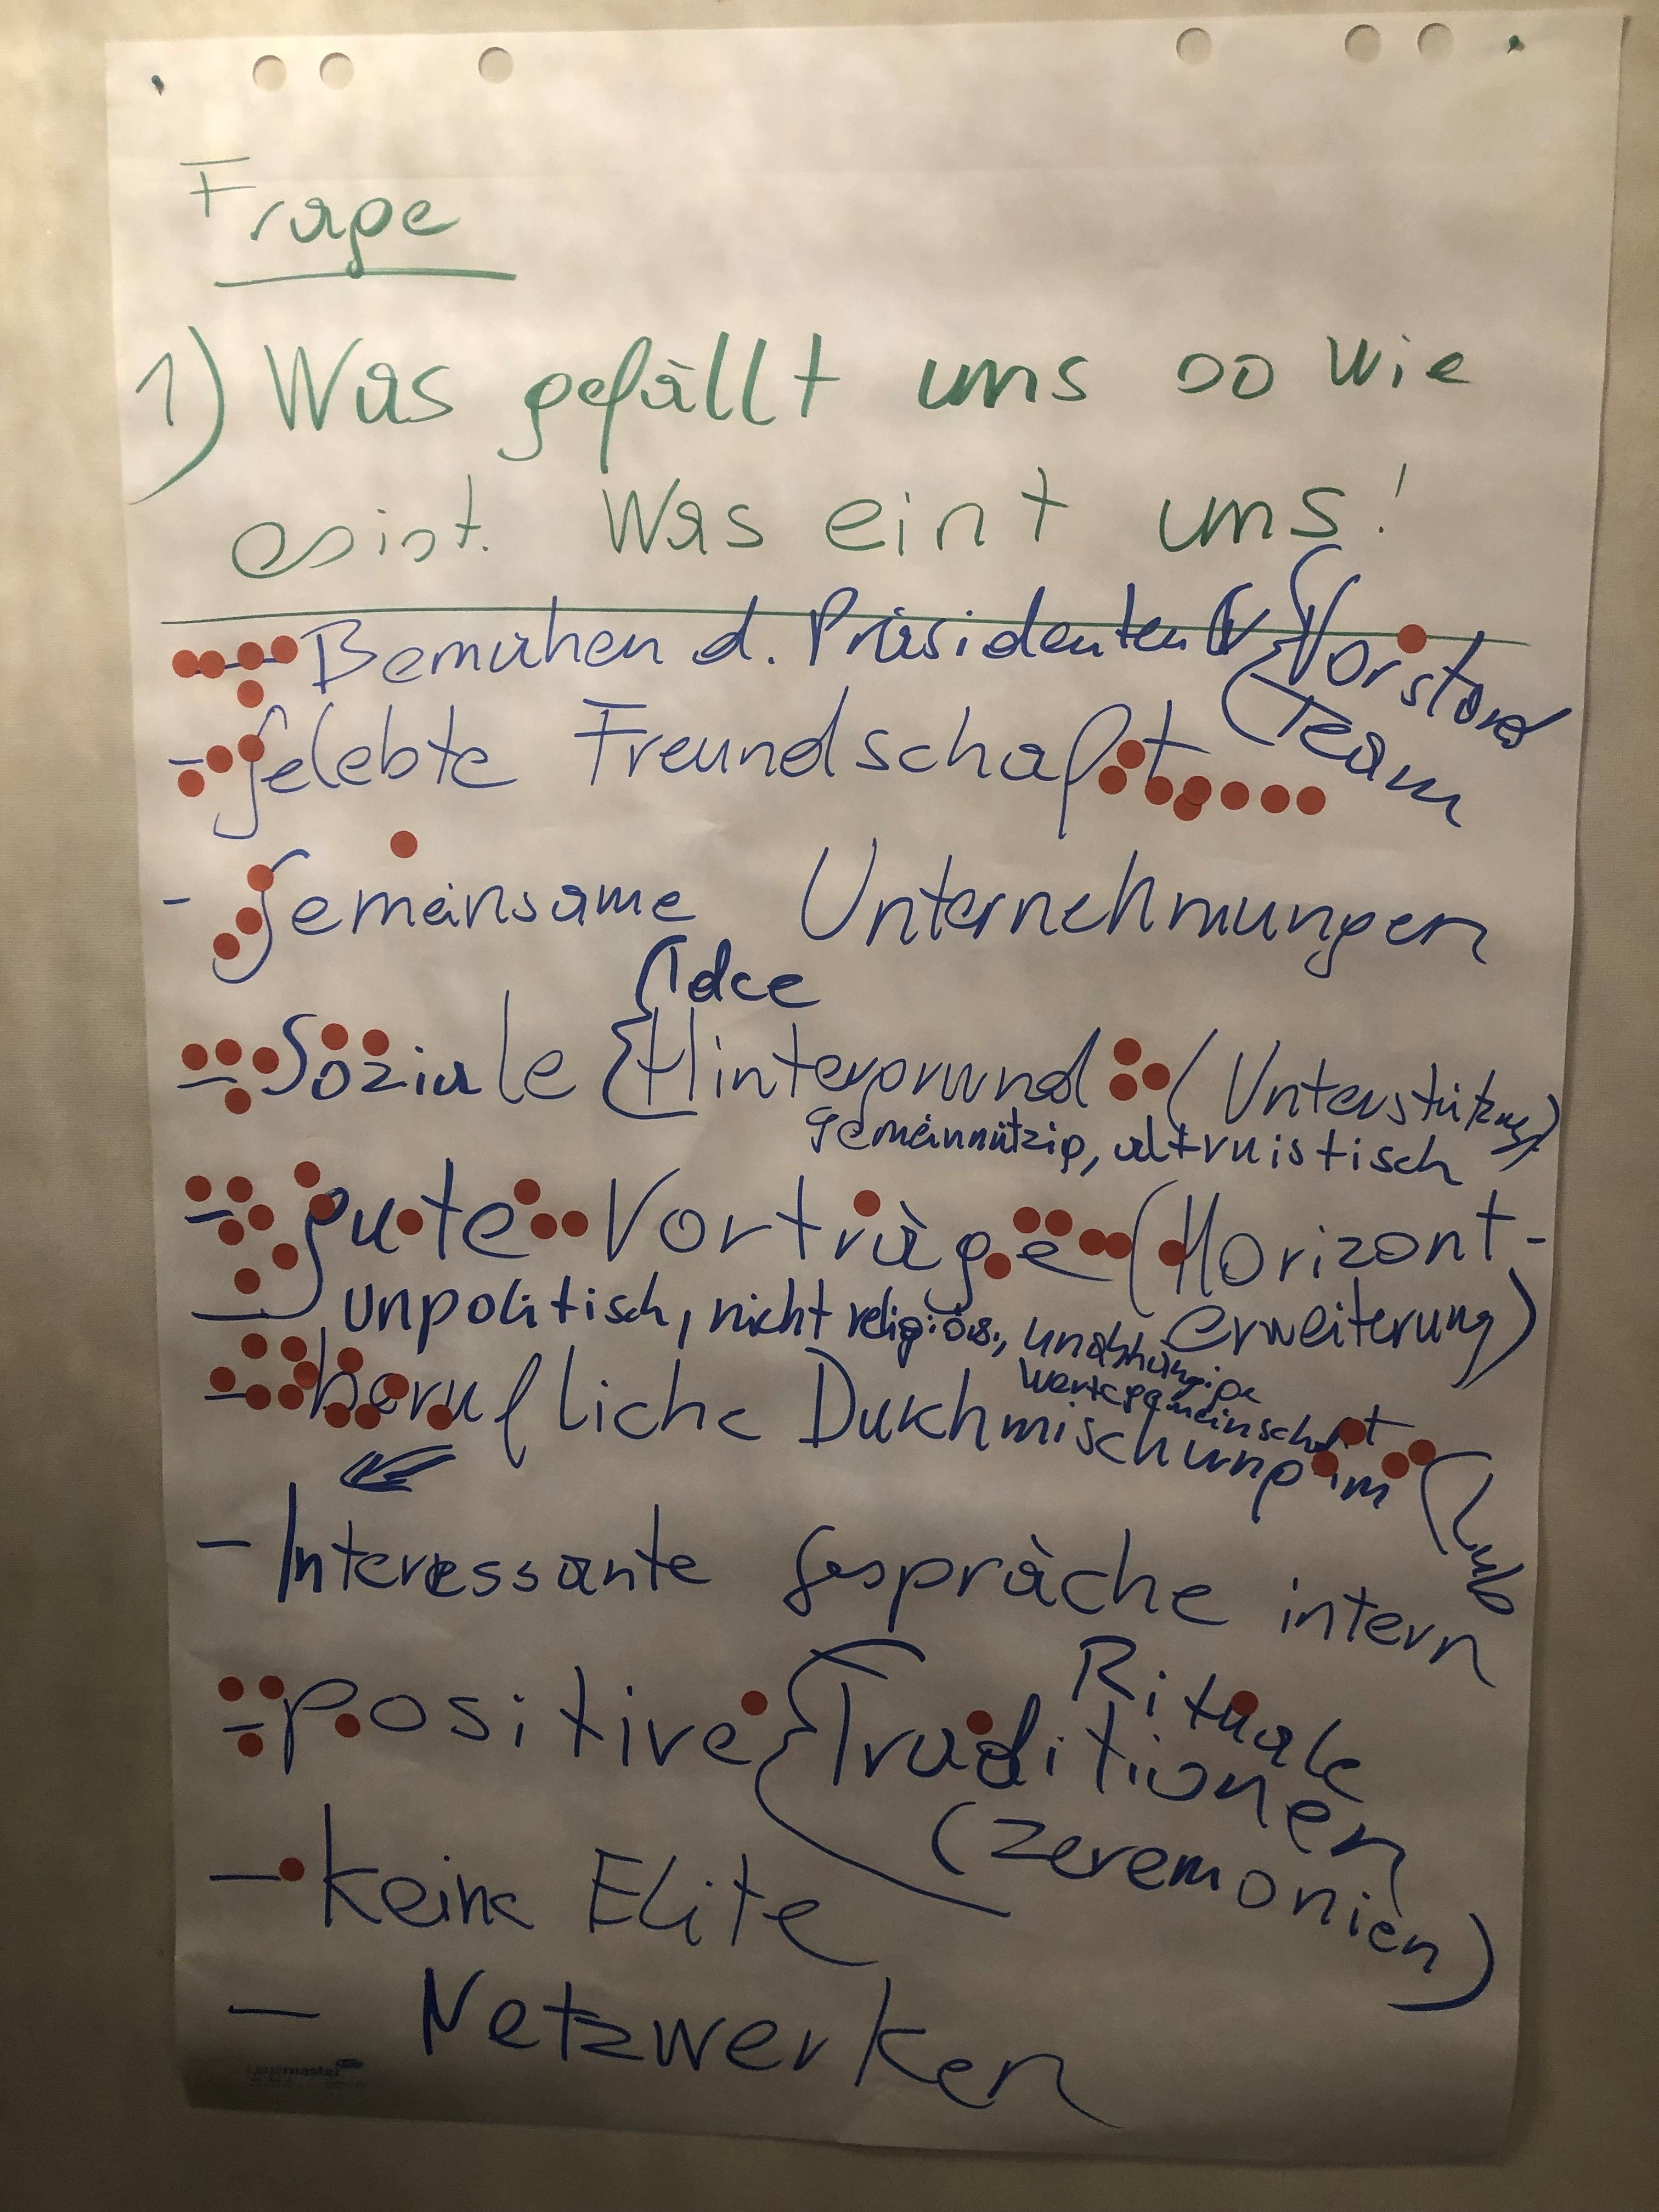 Frage
1) Was gefällt uns so wie
es ist. Was eint uns!
- Bemühen d. Präsidenten { Vorstand
Team
- gelebte Freundschaft
- gemeinsame Unternehmungen
Idee
- Soziale { Hintergrund (Unterstützung)
gemeinnützig, altruistisch
- gute Vorträge (Horizont-
erweiterung)
unpolitisch, nicht religiös., unabhängige
Wertegemeinschaft
- berufliche Durchmischung im Club
- Interessante Gespräche intern
Rituale
- positive { Traditionen
(Zeremonien)
- keine Elite
- Netzwerken